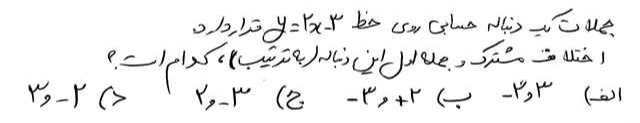 جملات یک دنباله حسابی روی خط y=2x-3 قرار دارد
اختلاف مشترک و جمله اول این دنباله (به ترتیب)، کدام است؟
الف) ۳ و ۲- ب) ۲+ و ۳- ج) ۳- و ۲ د) ۲- و ۳